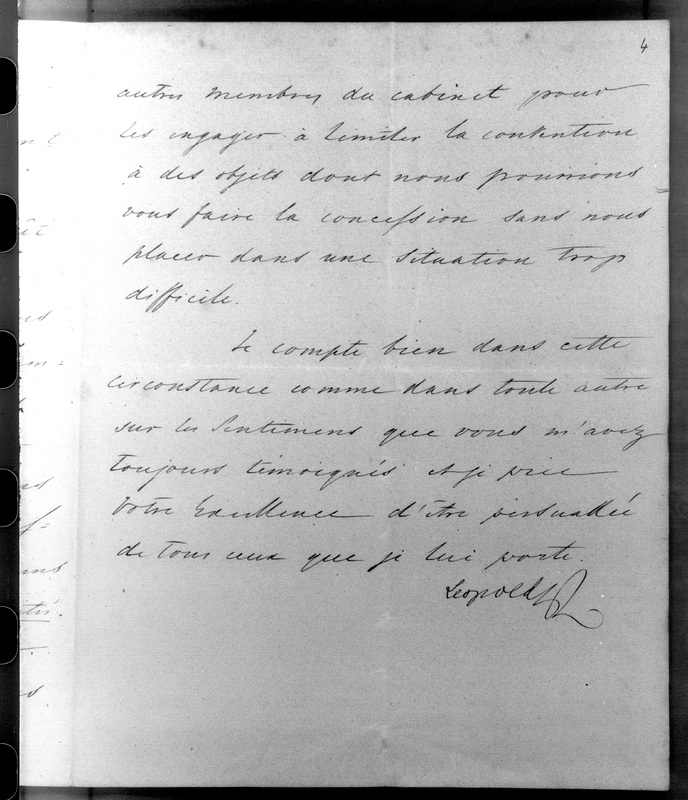 4
autres membres du cabinet pour
les engager à limiter la contention
à des objets dont nous pourrions
vous faire la concession sans nous
placer dans une situation trop
difficile.
Je compte bien dans cette
circonstance comme dans toute autre
sur les sentimens que vous m'avez
toujours témoignés et je prie
Votre Excellence d'être persuadée
de tous ceux que je lui porte.
Leopold